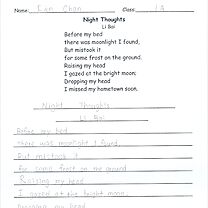 Name: Ken Chan Class: 1A
Night Thoughts
Li Bai
Before my bed
there was moonlight I found,
But mistook it
for some frost on the ground.
Raising my head
I gazed at the bright moon;
Dropping my head
I missed my hometown soon.
Night Thoughts
Li Bai
Before my bed
there was moonlight I found,
But mistook it
for some frost on the ground.
Raising my head
I gazed at the bright moon,
Dropping my head